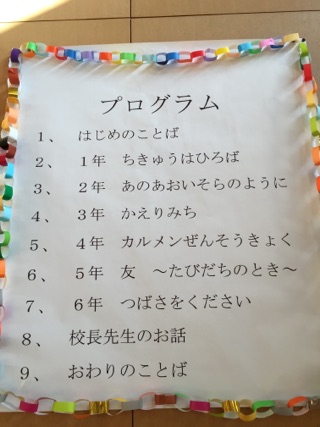 プログラム
１、 はじめのことば
２、 １年 ちきゅうはひろば
３、 ２年 あのあおいそらのように
４、 ３年 かえりみち
５、 ４年 カルメンぜんそうきょく
６、 ５年 友 〜たびだちのとき〜
７、 ６年 つばさをください
８、 校長先生のお話
９、 おわりのことば